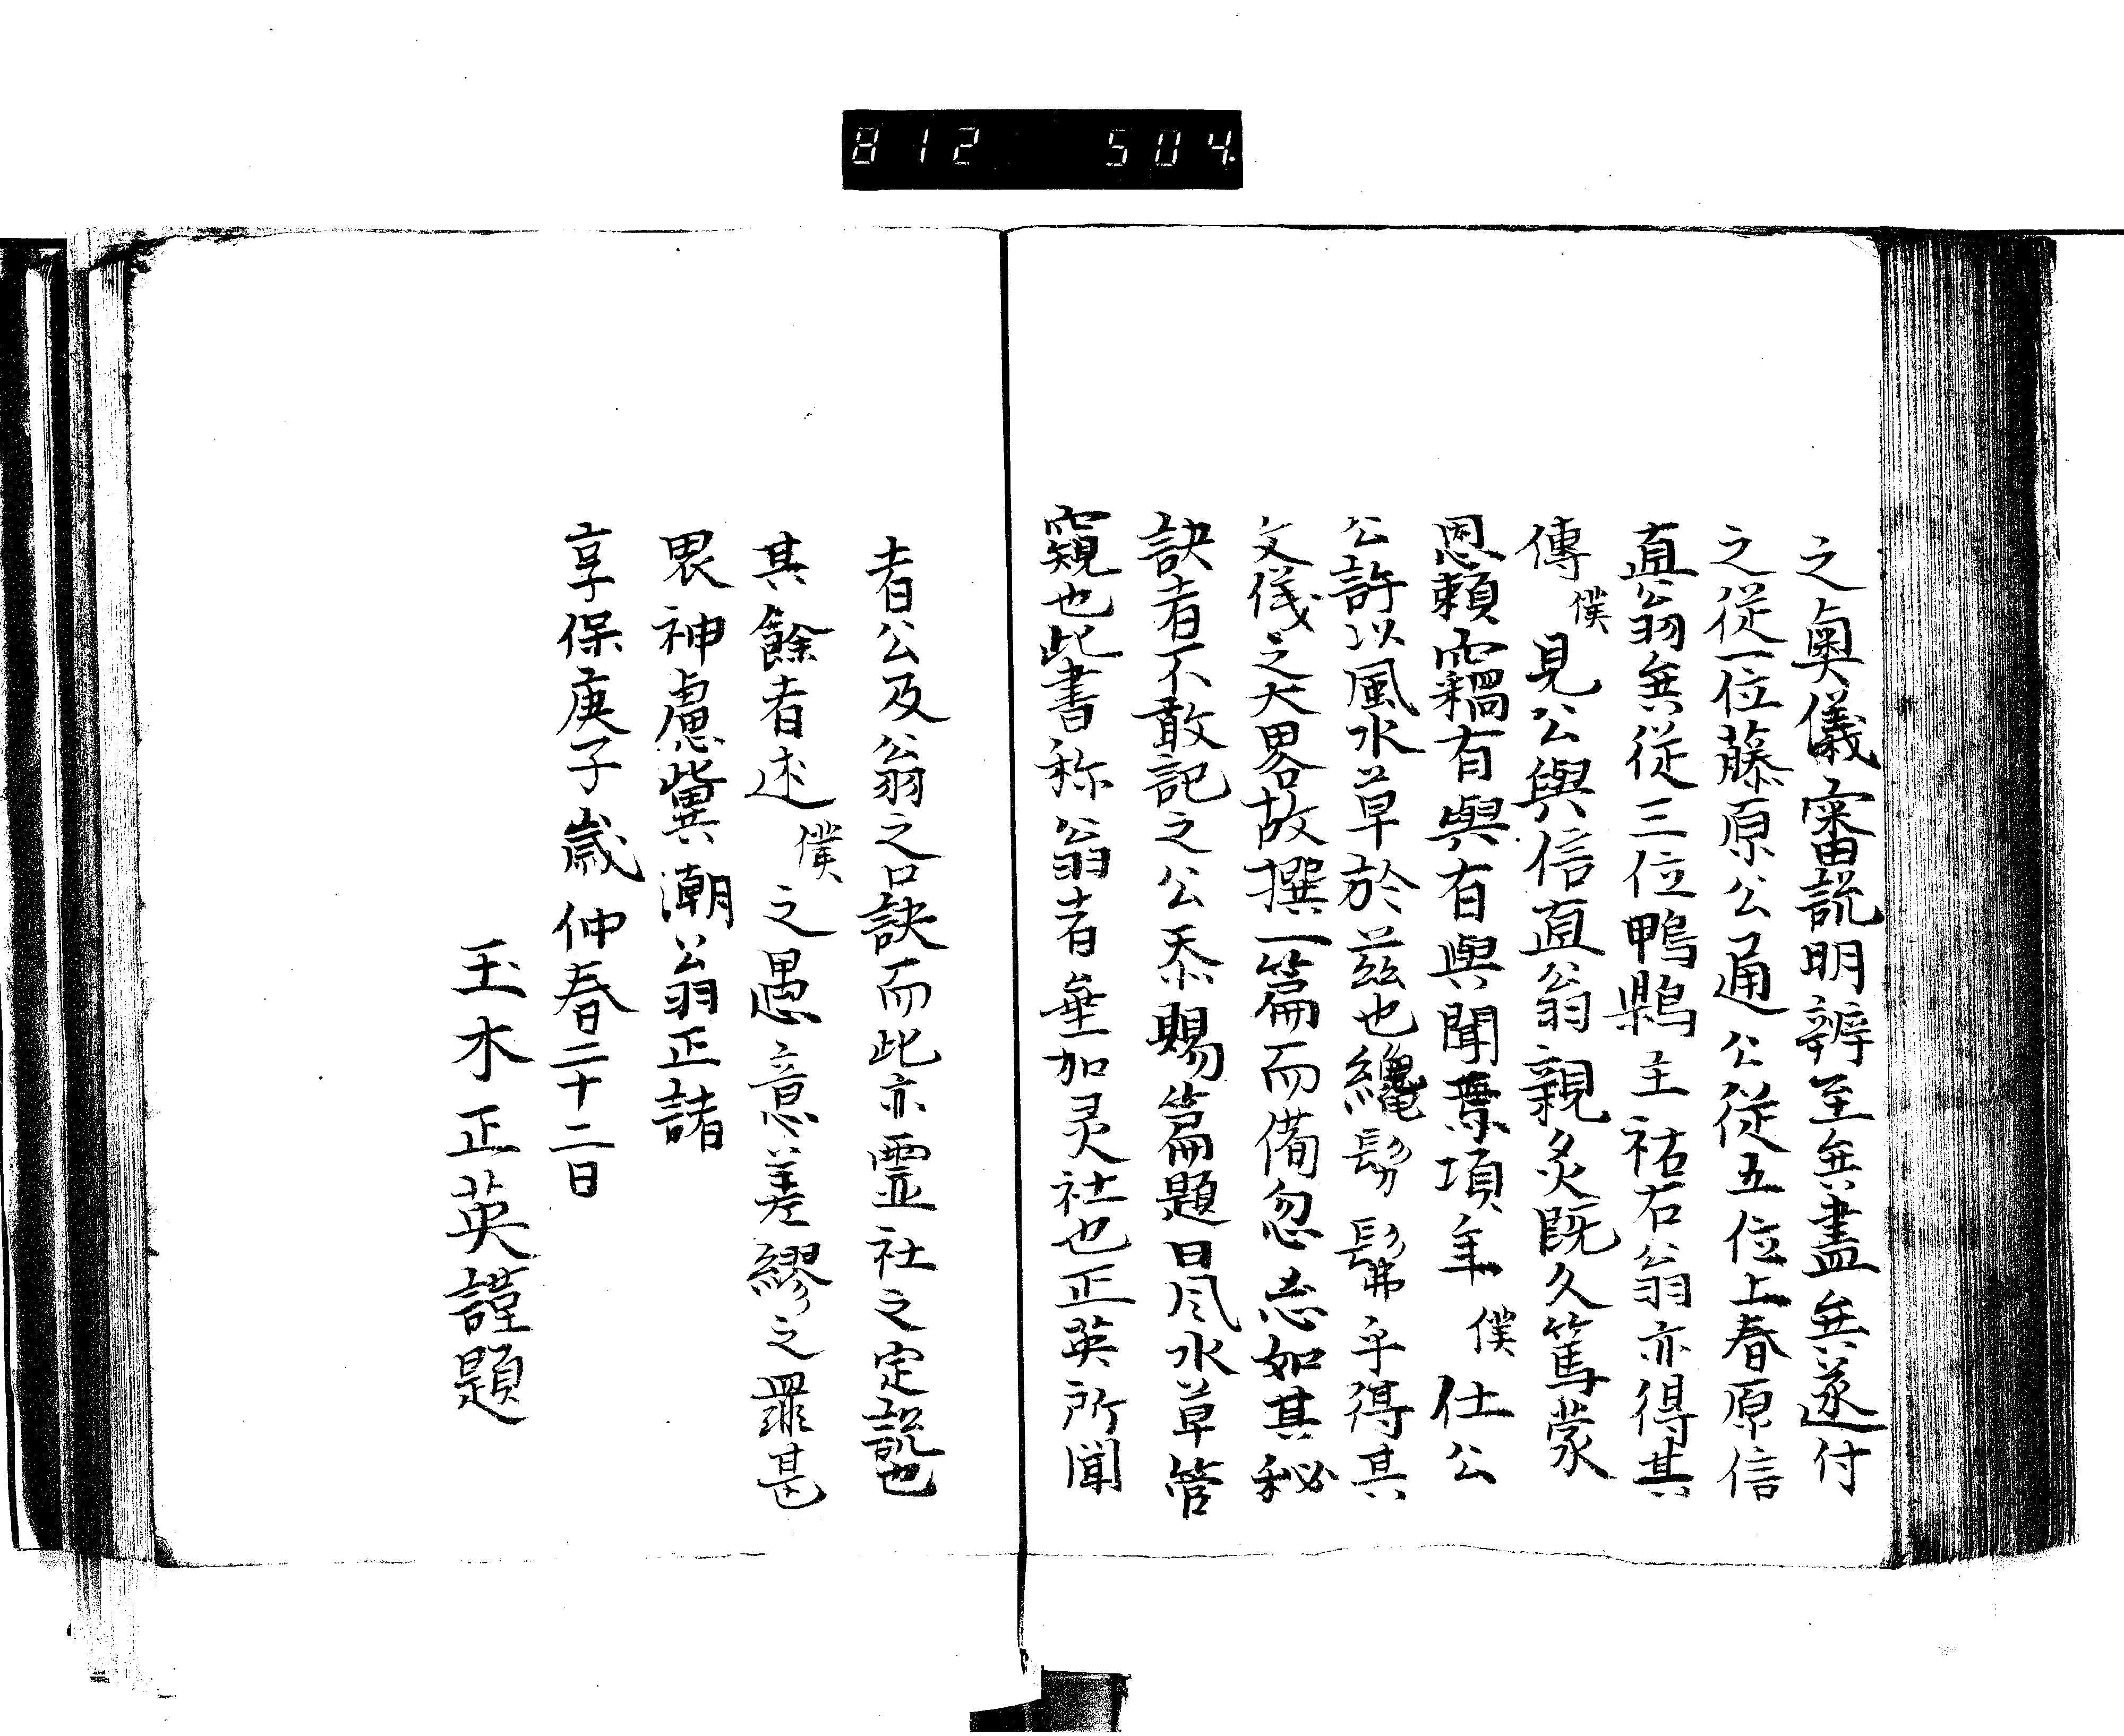 812 504.
之奥儀審説明辨至無盡無遂付
之従一位藤原公通公従五位上春原信
直翁無従三位鴨縣主祐右翁亦得其
傳僕見公與信直翁親炙既久篤蒙
恩頼竊有與有與聞焉項年僕仕公
公許以風水草於茲也纔髣髴乎得其
文儀之大畧故撰一篇而備忽忘如其秘
訣者不敢記之公忝賜篇題曰風水草管
窺也此書称翁者垂加灵社也正英所聞
者公及翁之口訣而此亦霊社之定説也
其餘者述僕之愚意差繆之罪甚
畏神慮冀潮翁正諸
享保庚子歳仲春二十二日
玉木正英謹題